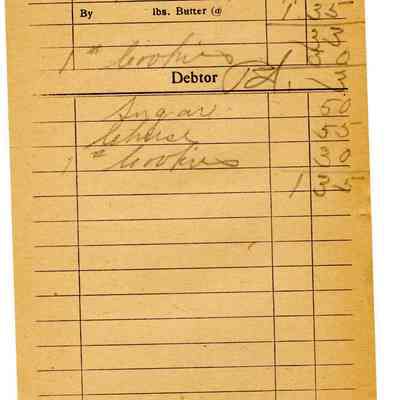 By lbs. Butter @ 1 35
33
1 # Cookies 30
Debtor Pd. 1 3
Sugar 50
Cheese 55
1 # Cookies 30
1 35